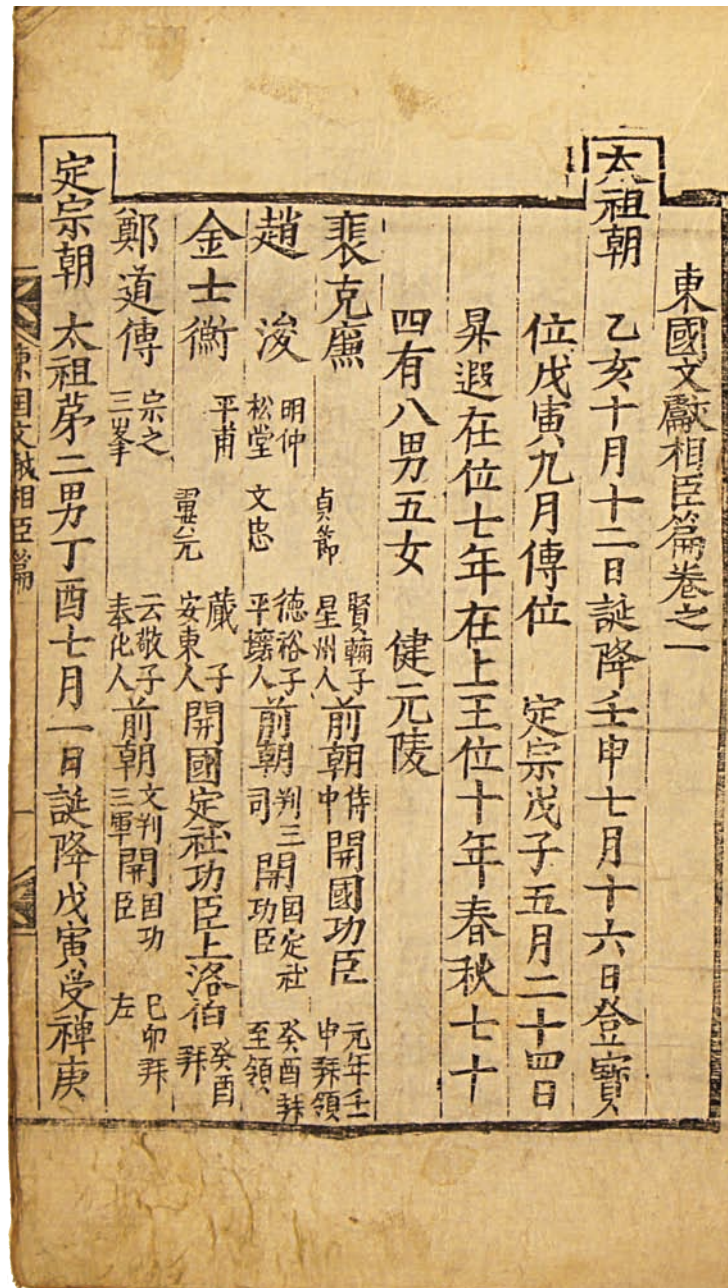 東國文獻相臣篇卷之一
太祖朝 乙亥十月十二日誕降壬申七月十六日登寶
位戊寅九月傳位 定宗戊子五月二十四日
昇遐在位七年在上王位十年春秋七十
四有八男五女 健元陵
裵克廉 貞節 賢輔子 星州人 前朝 侍中 開國功臣 元年壬申拜領
趙浚 明仲 松堂 文忠 德裕子 平壤人 前朝 判三司 開國定社功臣 癸酉拜至領
金士衡 平甫 翼元 蕆子 安東人 開國定社功臣上洛伯 癸酉拜
鄭道傳 宗之 三峯 云敬子 奉化人 前朝 文判三軍 開国功臣 己卯拜左
定宗朝 太祖第二男丁酉七月一日誕降戊寅受禅庚
東国文献相臣篇 一